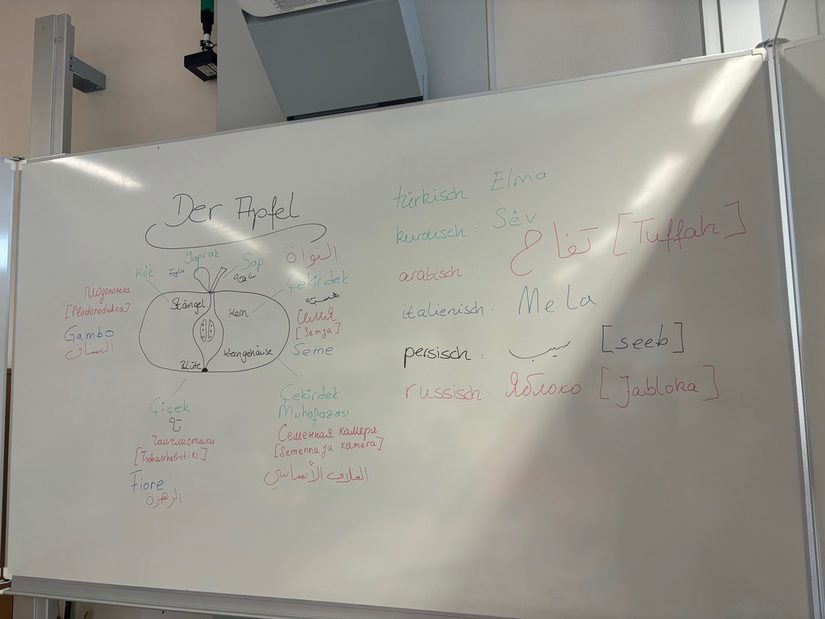 Der Apfel
türkisch: Elma
kurdisch: Sêv
arabisch تفاح [Tuffah]
italienisch: Mela
persisch: سیب [seeb]
russisch: Яблоко [Jabloka]
Yaprak
Kök
Sap
النواة
Çekirdek
Плодоножка
[Plodonodschka]
Gambo
الساق
Stängel
Kern
Kerngehäuse
Blüte
هسته
Семя
[Semja]
Seme
Çiçek
ته
Чашелистики
[Tschaschelistiki]
Fiore
الزهرة
Çekirdek
Muhafazası
Семенная камера
[Semennaja kamera]
الغلاف الأساسي